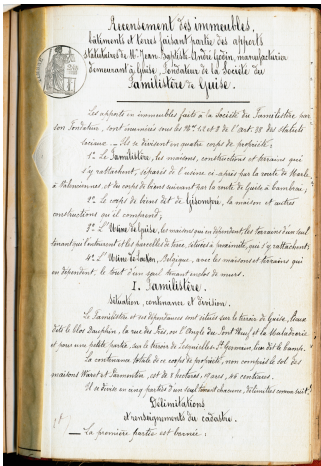 Recensement des immeubles,
bâtiments et terres faisant partie des apports
statutaires de Mr Jean-Baptiste André Godin, manufacturier
demeurant à Guise, Fondateur de la Société du
Familistère de Guise.
Les apports en immeubles faits à la Société du Familistère par
son Fondateur, sont énumérés sous les Nos 1, 2 et 3 de l'art. 88 des statuts
sociaux. Ils se divisent en quatre corps de propriété;
1° Le Familistère, les maisons, constructions et terrains qui
s'y rattachent, séparés de l'usine ci-après par la route de Marle
à Valenciennes et du corps de biens suivant par la route de Guise à Cambrai;
2° Le corps de biens dit de Gisompré, la maison et autres
constructions qu'il comprend;
3° L'Usine de Guise, les maisons qui en dépendent, les terrains d'un seul
tenant qui l'entourent et les parcelles de terre, situées à proximité, qui s'y rattachent;
4° L'Usine de Laeken, Belgique, avec les maisons et terrains qui
en dépendent, le tout d'un seul tenant enclos de murs.
I. Familistère.
Situation, contenance et division.
Le Familistère et ses dépendances sont situés sur le terroir de Guise, lieux
dits le Clos Dauphin, la rue des Fées, ou l'Angle du Pont Neuf et la Maladrerie
et pour une petite partie, sur le terroir de Lesquielles St Germain, lieu dit le
La contenance totale de ce corps de propriété, non compris le sol des
maisons et est de 8 hectares, ares, centiares.
Il se divise en cinq parties d'un seul tenant chacune, délimitées comme suit:
Délimitations
et renseignements du cadastre.
La première partie est bornée: